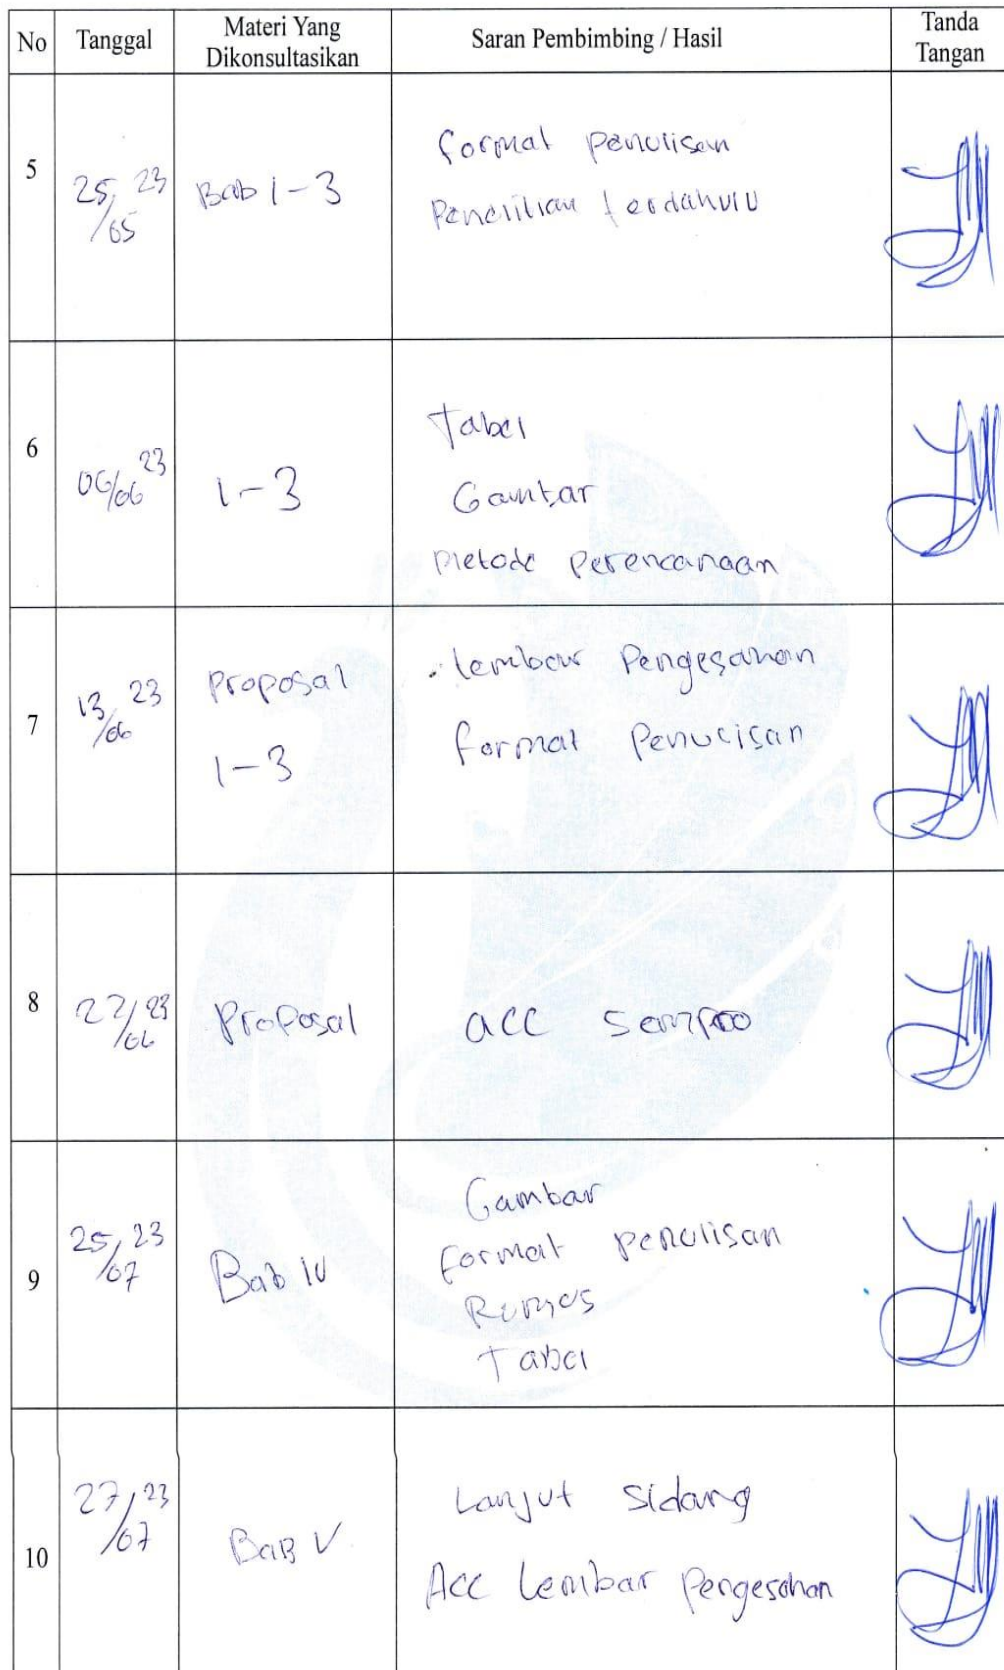 No Tanggal Materi Yang Dikonsultasikan Saran Pembimbing / Hasil Tanda Tangan
5 25/05 23 Bab 1-3 format penulisan
Penelitian terdahulu
6 06/06 23 1-3 Tabel
Gambar
Metode perencanaan
7 13/06 23 Proposal 1-3 lembar Pengesahan
format Penulisan
8 22/06 23 Proposal acc sempro
9 25/07 23 Bab IV Gambar
format penulisan
Rumus
Tabel
10 27/07 23 Bab V Lanjut sidang
Acc Lembar Pengesahan